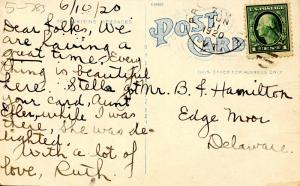 5-83
6/10/20
Dear folks, We
are having a
great time. Every
thing is beautiful
here. Stella got
your card, Aunt
Effer, while I was
here, she was de-
lighted.
With a lot of
love, Ruth.
POST
CARD
1920
U.S. POSTAGE
1 CENT 1
THIS SPACE FOR ADDRESS ONLY
Mr. B. F. Hamilton
Edge Moor
Delaware.